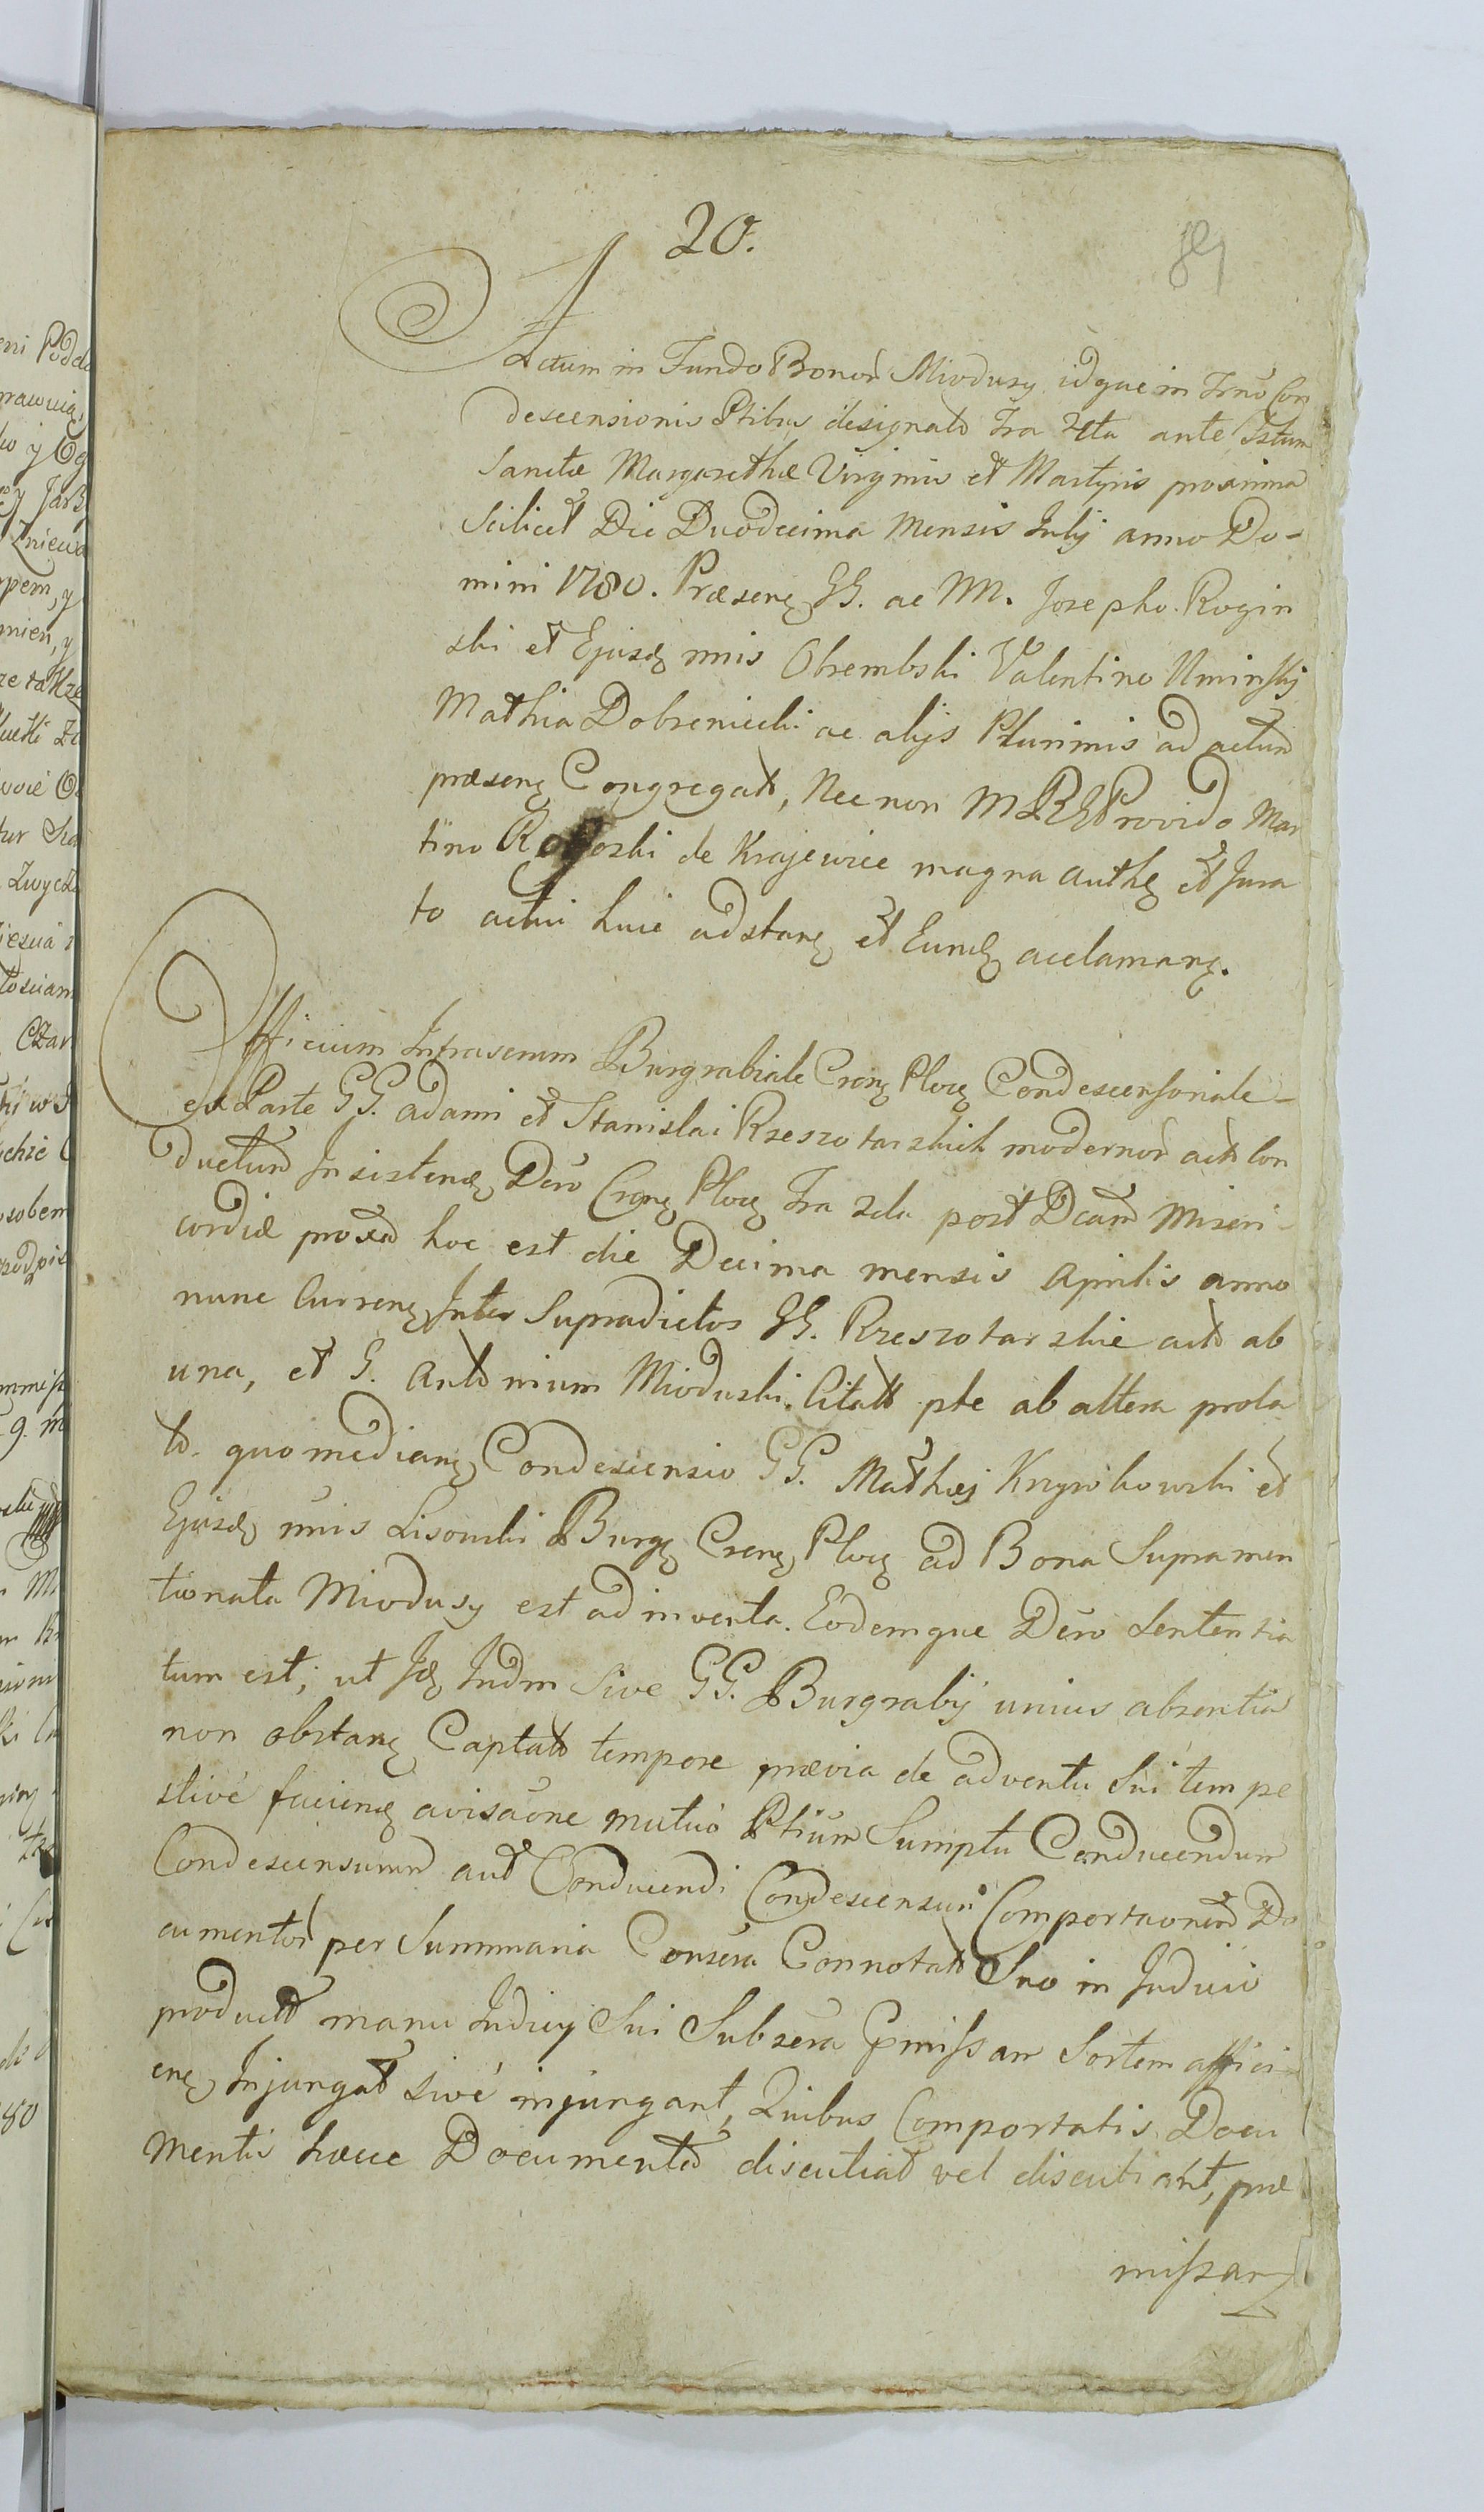 20.
Actum in Fundo Bonor Miodusy idque in Trno Con
descensionis Ptibus designato Fra 4ta ante Fstum
Sanctæ Margarethæ Virginis et Martyris proxima
Scilicet Die Duodecima Mensis Julij anno Do-
mini 1780. Præsenę GG. ac NN. Josepho Rogin
ski et Ejusdę nnis Obrembski Valentino Uminskij
Mathia Dobreniecki ac alijs Plurimis ad actum
præsenę Congregatt, Nec non Provido Mar
tino de Krajewice magna authę et Jura
to actui huic adstanę et Eundę acclamanę.
Officium Infrascrum Burgrabiale Cranę Plocę Condescensoriale
ex Parte GG. Adami et Stanislai Rzeszotarskich modernor act Con
ductum Insistendę Dcro Cranę Plocę Fra 2da post Dcam Miseri-
cordiæ proxa hoc est die Decima mensis Aprilis anno
nunc Currenę Inter Supradictos GG. Rzeszotarskie act ab
una, et G. Antonium Mioduski Citatt pte ab altera prola
to. quo medianę Condescensio GG. Mathæj Krzywkowski et
Ejusdę nnis Lisowski Burgę Cranę Plocę ad Bona Supramen
tionata Miodusy est ad inventa. Eodemque Dcro Sententia
tum est; ut Jdę Judm Sive GG. Burgrabij unius absentia
non obstanę Captato tempore prævia de adventu Sui tempe
stivé faciendę avisaone mutuó Ptium Sumptu Conducendum
Condescensum aut Conducendi Condescensum Comportaonem Do
cumentor per Summaria Conscra Connotatt Suo in Judicio
product manu Judicij Sui Subscra missam Sortem affici
enę Injungat sivé injungant, Quibus Comportatis Docu
mentis hæcce Documenta discutiat vel discutiant, præ
missam